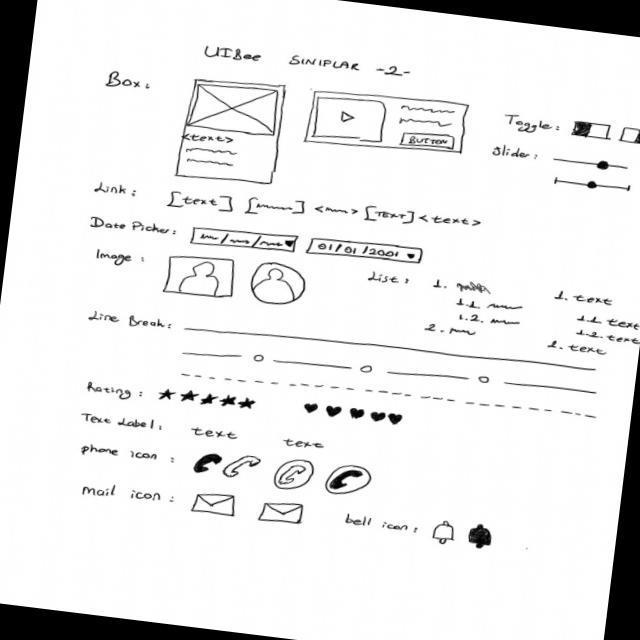 UIBee SINIPLAR -2-
Box:
<text>
BUTTON
Toggle:
Slider:
Link: [text] [ ] < > [TEXT] <text>
Date Picker: / / 01/01/2001
Image:
List: 1. 1. text
1.1. 1.1 text
1.2. 1.2. text
2. 2. text
Line Break:
Rating:
Text Label: text text
phone icon:
mail icon:
bell icon: